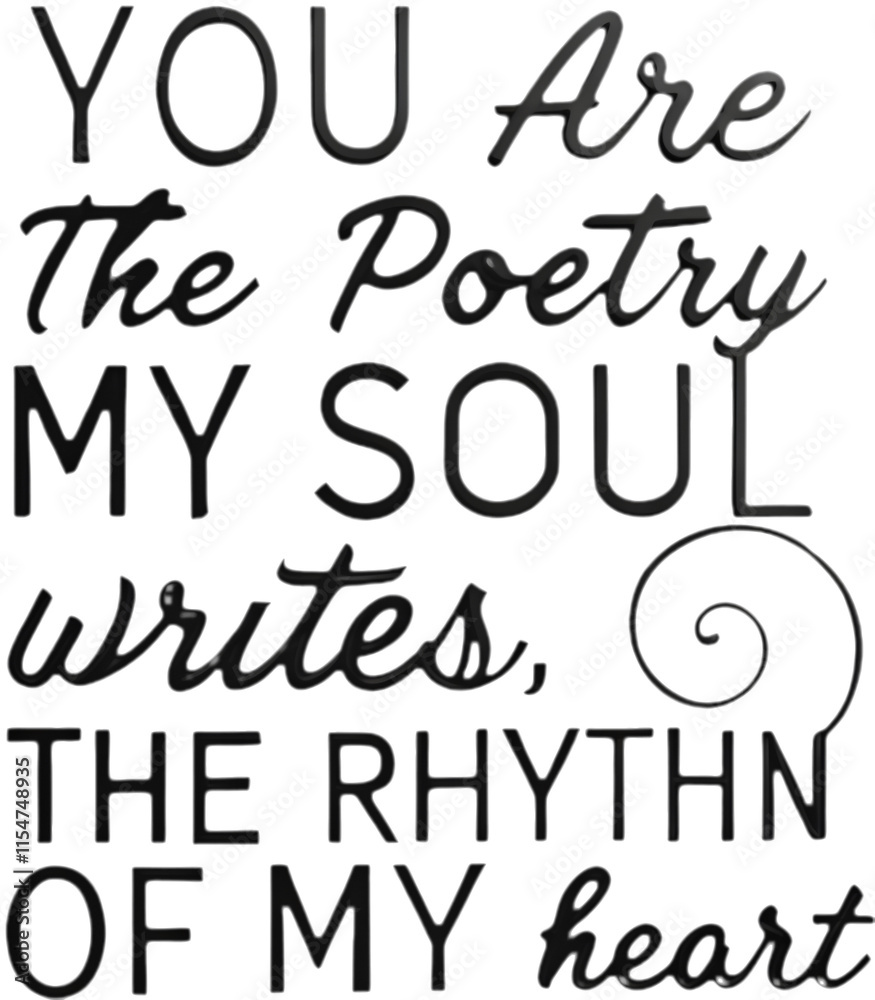 YOU Are
The Poetry
MY SOUL
writes,
THE RHYTHN
OF MY heart
Adobe Stock | #1154748935